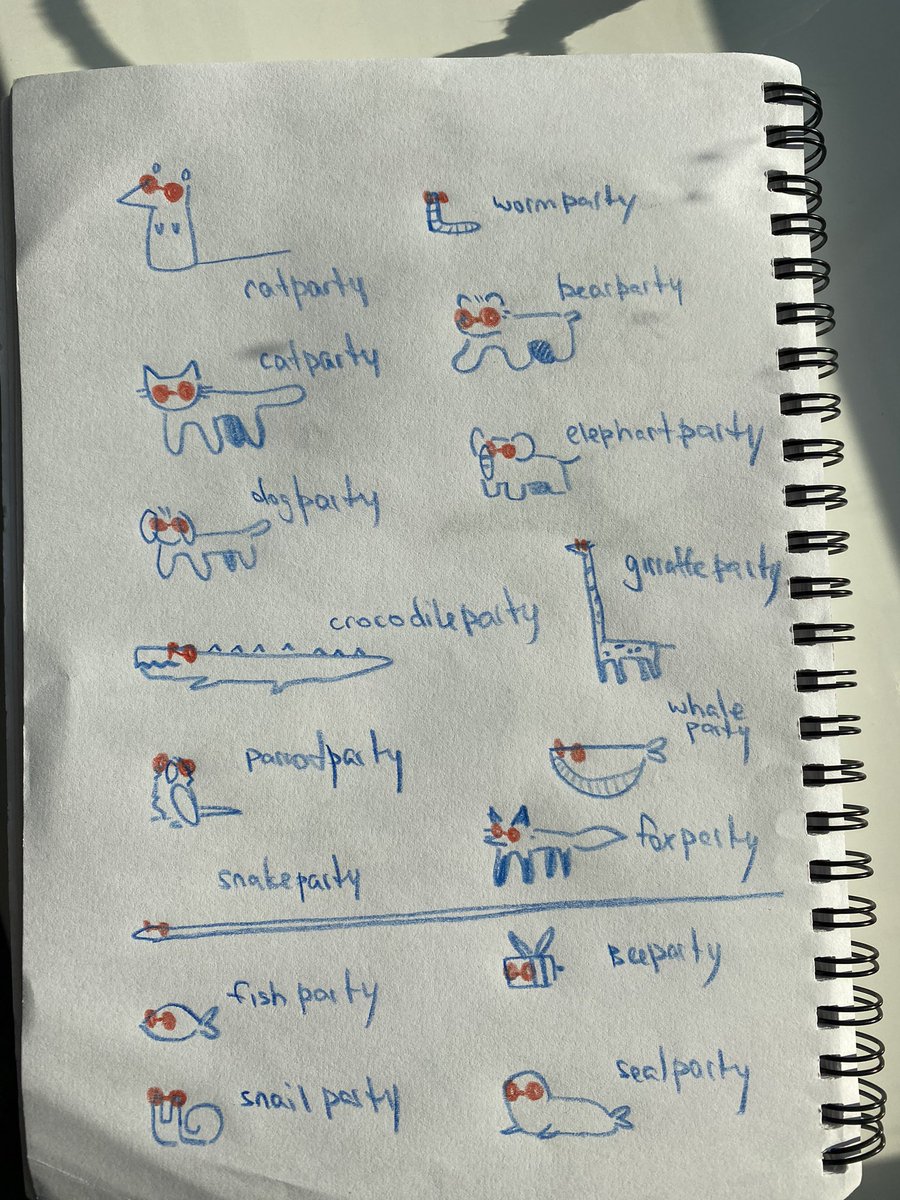 ratparty
catparty
dogparty
crocodileparty
parrotparty
snakeparty
fish party
snail party
wormparty
bearparty
elephantparty
girraffe party
whale
party
foxparty
Beeparty
sealparty